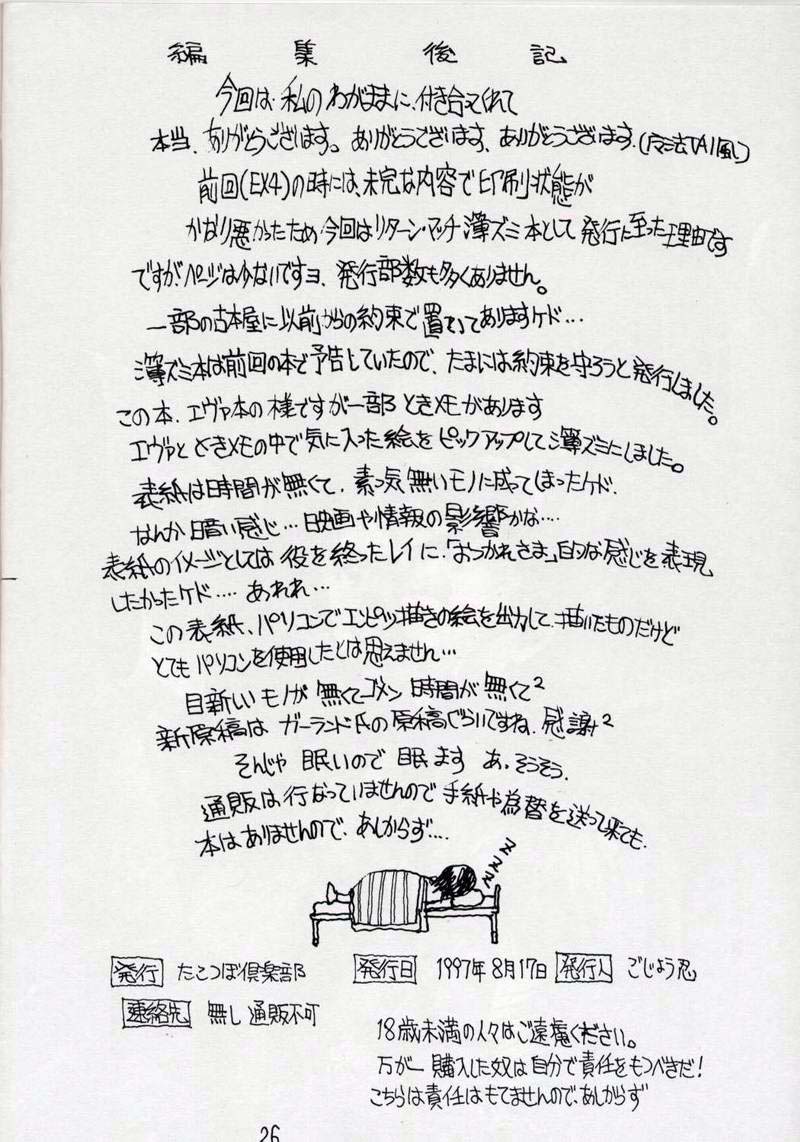 編集後記
今回は私のわがままに付き合ってくれて
本当、ありがとうございます。ありがとうございます、ありがとうございます。(
前回(EX4)の時には、未完な内容で印刷状態が
かなり悪かったため今回はリターン・マッチ薄ズミ本として発行に至った理由です
ですが、ページは少ないですヨ、発行部数も多くありません。
一部の古本屋に以前からの約束で置いてありますケド…
薄ズミ本は前回の本で予告していたので、たまには約束を守ろうと発行しました。
この本、エヴァ本の様ですが一部ときメモがあります
エヴァとときメモの中で気に入った絵をピックアップして薄ズミにしました。
表紙は時間が無くて、素っ気無いモノに成ってしまったケド、
なんか暗い感じ…映画や情報の影響かな….
表紙のイメージとしては役を終ったレイに、「おつかれさま」的な感じを表現
したかったケド…. あれれ…
この表紙、パソコンでエンピツ描きの絵を出力して、描いたものだけど
とてもパソコンを使用したとは思えません…
目新しいモノが無くてゴメン時間が無くて²
新原稿はガーランド氏の原稿ぐらいですね、感謝²
そんじゃ眠いので眠ます あ、そうそう、
通販は行なっていませんので手紙や為替を送って来ても、
本はありませんので、あしからず….
zzzz
発行 たこつぼ倶楽部 発行日 1997年8月17日 発行人 ごじょう忍
連絡先 無し 通販不可
18歳未満の人々はご遠慮ください。
万が一購入した奴は自分で責任をもつべきだ!
こちらは責任はもてませんので、あしからず
26